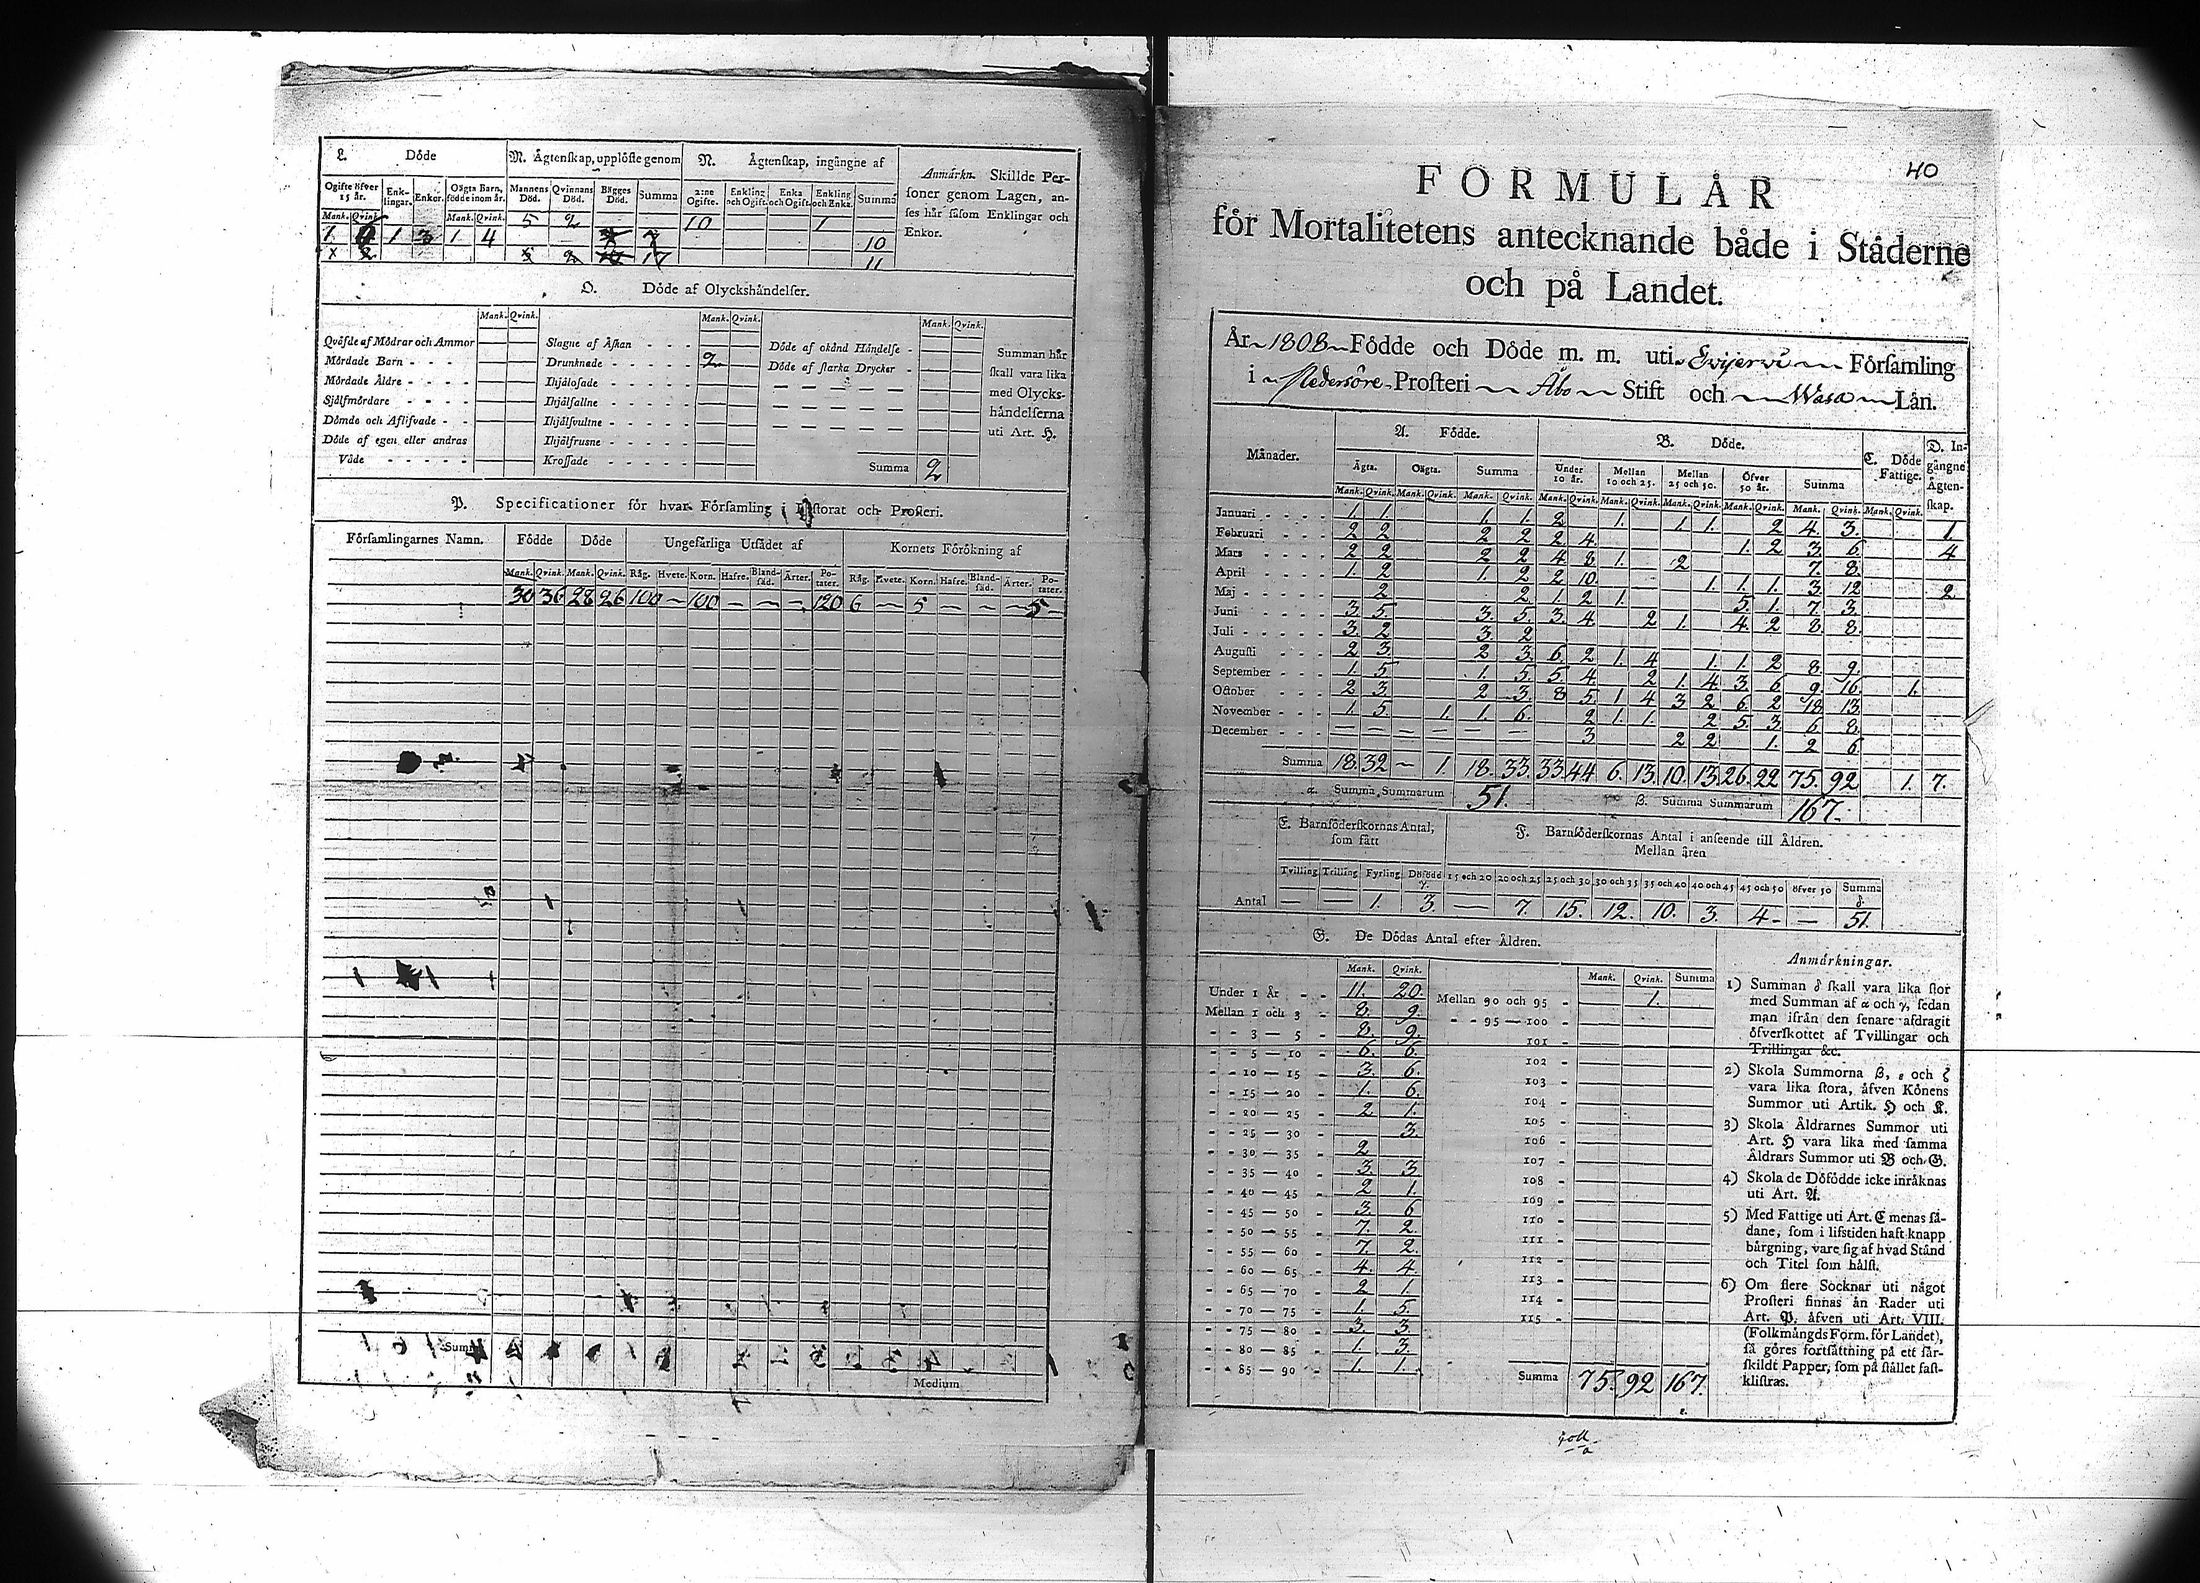 L. Döde
M. Ågtenskap, upplöste genom
N. Ågtenskap, ingångne af
Anmärkn. Skillde Per-
soner genom Lagen, an-
ses här såsom Enklingar och
Enkor.
Ogifte öfver 15 år. Enk-lingar. Enkor. Oägta Barn, födde inom år. Mannens Död. Qvinnans Död. Bägges Död. Summa 2:ne Ogifte. Enkling och Ogift. Enka och Ogift. Enkling och Enka. Summa
Mank. Qvink. Mank. Qvink. 5 2 10 1
1. 1 3 1 4 10
11
O. Döde af Olyckshändelser.
Mank. Qvink. Mank. Qvink. Mank. Qvink.
Qväfde af Mödrar och Ammor Slagne af Åskan Döde af okänd Händelse Summan här
Mördade Barn Drunknade 2 Döde af starka Drycker skall vara lika
Mördade Äldre Ihjälosade med Olycks-
Sjelfmördare Ihjälfallne händelserna
Dömde och Aflifvade Ihjälfvultne uti Art. H.
Döde af egen eller andras Ihjälfrusne
Våde Krossade Summa 2
P. Specificationer för hvar Församling i Pastorat och Prosteri.
Församlingarnes Namn. Födde Döde Ungefärliga Utsädet af Kornets Förökning af
Mank. Qvink. Mank. Qvink. Råg. Hvete. Korn. Hafre. Bland-säd. Ärter. Po-tater. Råg. Hvete. Korn. Hafre. Bland-säd. Ärter. Po-tater.
30 36 28 26 100 — 100 — — — 120 6 — 5 — — — 5
Summa
Medium
40
FORMULÅR
för Mortalitetens antecknande både i Städerne
och på Landet.
År 1808 Födde och Döde m. m. uti Församling
i Pedersöre Prosteri Åbo Stift och Wasa Län.
Månader. A. Födde. B. Döde. C. Döde Fattige. D. In-gångne Ägten-skap.
Ägta. Oägta. Summa Under 10 år. Mellan 10 och 25. Mellan 25 och 50. Öfver 50 år. Summa
Mank. Qvink. Mank. Qvink. Mank. Qvink. Mank. Qvink. Mank. Qvink. Mank. Qvink. Mank. Qvink. Mank. Qvink. Mank. Qvink.
Januari 1. 1. 1. 1. 2 1. 1. 1. 2 4. 3. 1.
Februari 2 2 2 2 2 4. 1. 2 3. 6. 4
Mars 2 2 2 2 4 8 1. 2 7. 8.
April 1. 2 1. 2 2 10. 1. 1. 1. 3. 12 2
Maj 2 2 1. 2 1. 5. 1. 7. 3.
Juni 3. 5. 3. 5. 3. 4. 2 1. 4. 2 8. 8.
Juli 3. 2 3. 2
Augusti 2 3. 2 3. 6. 2 1. 4. 1. 1. 2 8. 9.
September 1. 5. 1. 5. 5 4. 2 1. 4. 3. 6. 9. 16. 1.
October 2 3. 2 3. 8 5. 1 4 3 2 6. 2 18. 13.
November 1. 5. 1. 1. 6. 2 1. 1. 2 5. 3. 6 8.
December — — — — — — 3 2 2 1. 2 6
Summa 18. 32 — 1. 18. 33. 33. 44 6. 13. 10. 13. 26. 22 75. 92 1. 7.
α. Summa Summarum 51. β. Summa Summarum 167.
E. Barnföderskornas Antal, som fått
F. Barnföderskornas Antal i anseende till Åldren.
Mellan åren
Tvilling Trilling Fyrling Döfödd γ. 15 och 20 20 och 25 25 och 30 30 och 35 35 och 40 40 och 45 45 och 50 öfver 50 Summa δ.
Antal — — 1. 3. — 7. 15. 12. 10. 3. 4 — 51.
G. De Dödas Antal efter Åldren.
Mank. Qvink. Mank. Qvink. Summa
Under 1 År 11. 20. Mellan 90 och 95 1.
Mellan 1 och 3 8. 9. 95 — 100
3 — 5 8. 9. 101
5 — 10 6. 6. 102
10 — 15 3. 6. 103
15 — 20 1. 6. 104
20 — 25 2 1. 105
25 — 30 3. 106
30 — 35 2 107
35 — 40 3. 3 108
40 — 45 2 1. 109
45 — 50 3. 6 110
50 — 55 7. 2 111
55 — 60 7. 2 112
60 — 65 4. 4. 113
65 — 70 2 1. 114
70 — 75 1. 5. 115
75 — 80 3. 3.
80 — 85 1. 3.
85 — 90 1. 1. Summa 75. 92 167.
Anmärkningar.
1) Summan δ skall vara lika stor
med Summan af α och γ, sedan
man ifrån den senare afdragit
öfverskottet af Tvillingar och
Trillingar &c.
2) Skola Summorna β, ε och ζ
vara lika stora, äfven Könens
Summor uti Artik. H och K.
3) Skola Åldrarnes Summor uti
Art. H vara lika med samma
Åldrars Summor uti B och G.
4) Skola de Döfödde icke inräknas
uti Art. A.
5) Med Fattige uti Art. C menas så-
dane, som i lifstiden haft knapp
bärgning, vare sig af hvad Stånd
och Titel som hålst.
6) Om flere Socknar uti något
Prosteri finnas än Rader uti
Art. P. äfven uti Art. VIII.
(Folkmängds Form. för Landet),
så göres fortsättning på ett sär-
skildt Papper, som på stället fast-
klistras.